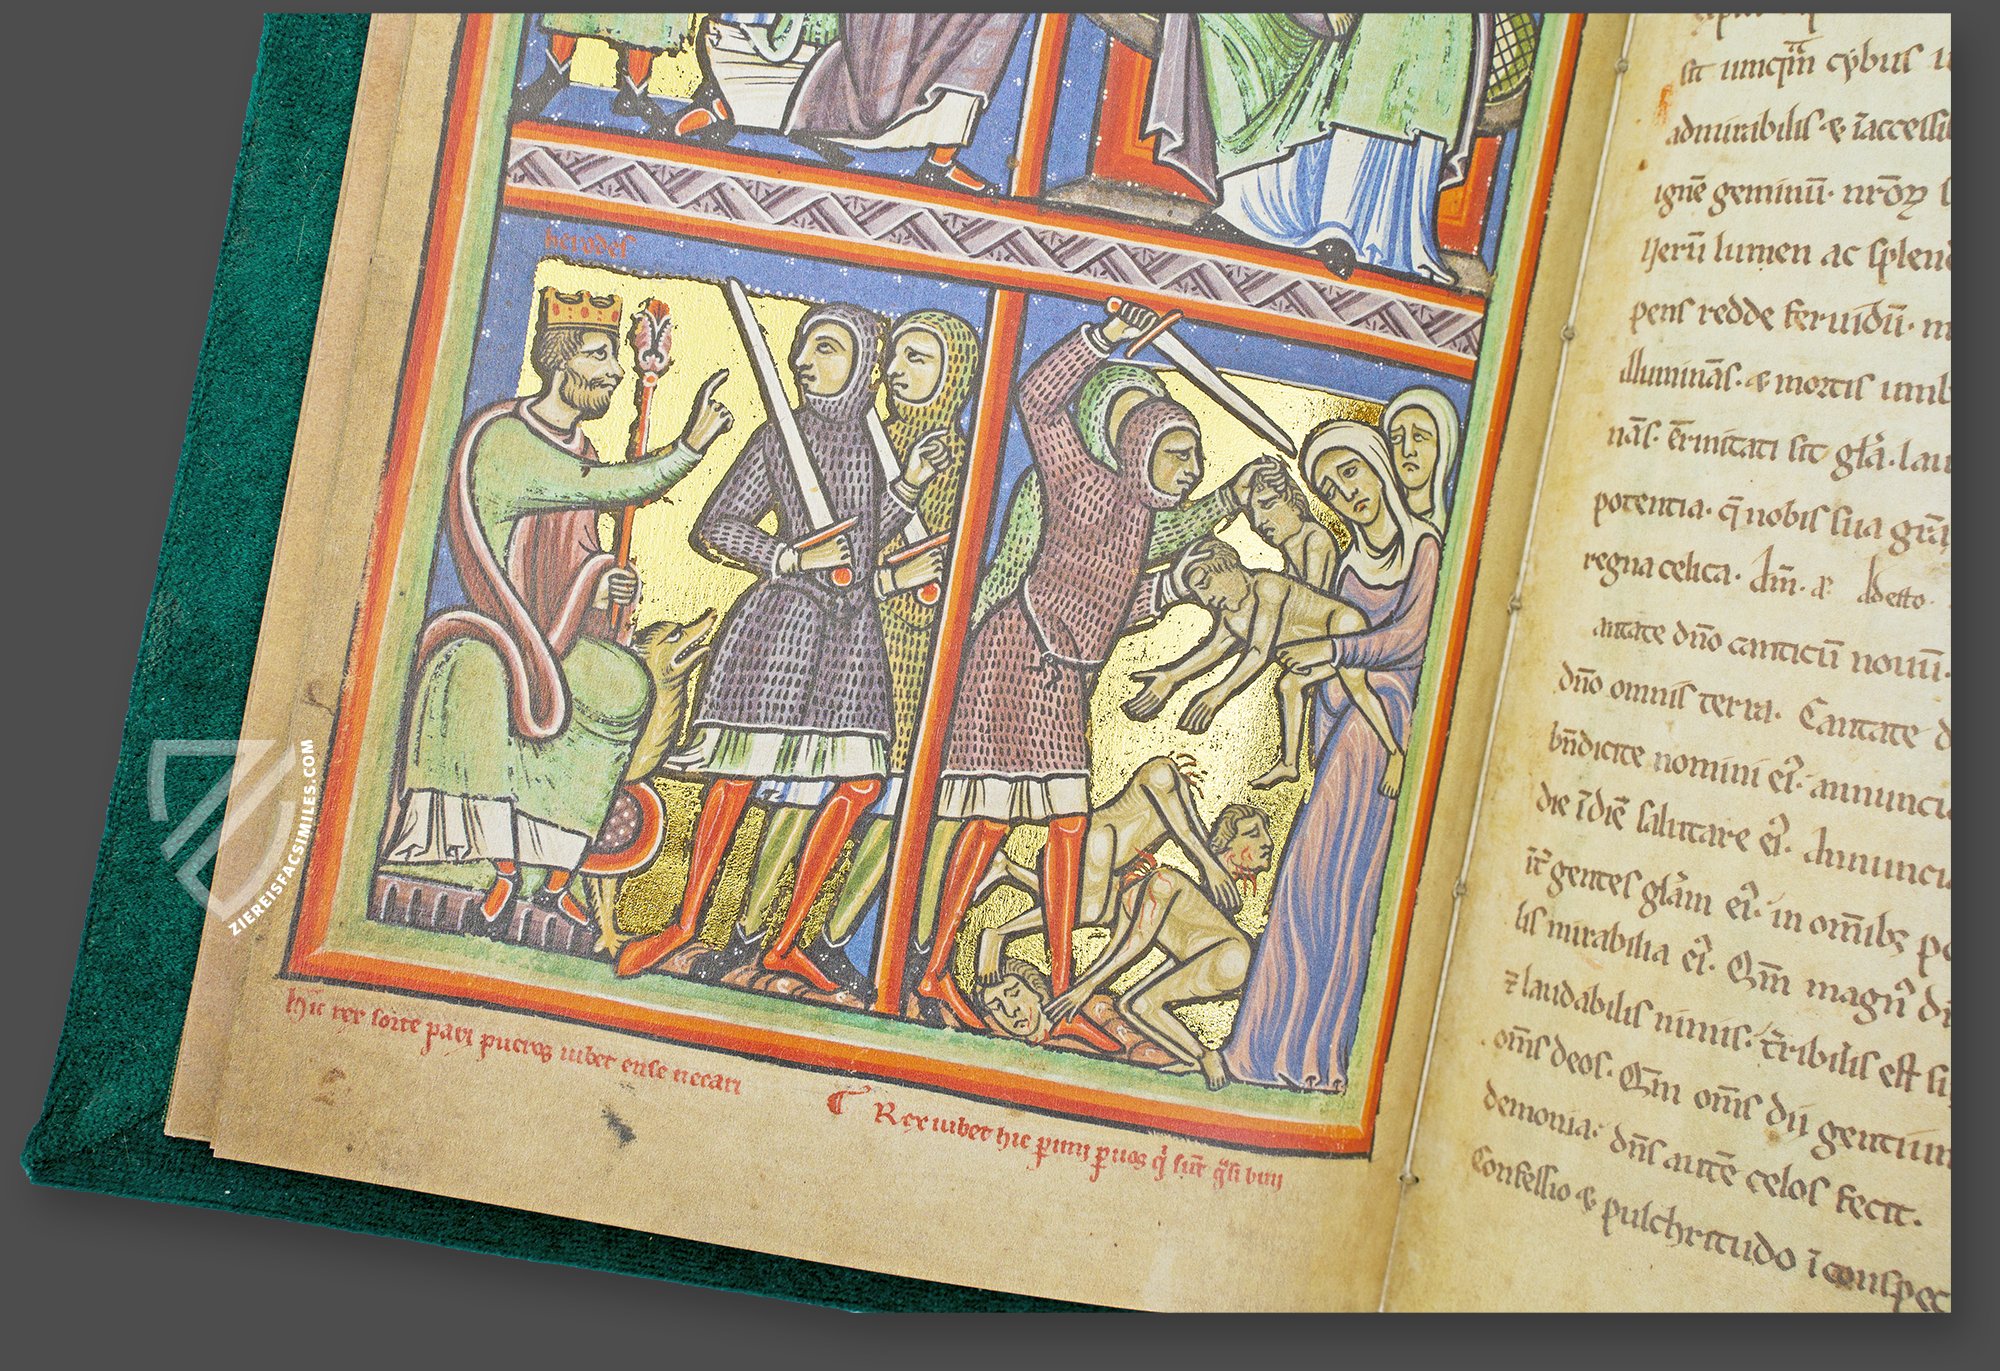 herodes
hic rex sorte pari pueros iubet ense necari
Rex iubet hic p̄imi p̄uos q̇ sūt q̇si bini
sit umq̄m cybus
admirabilis · & īaccessi
ignē geminū · nr̄oꝝ
lumen ac splend
pens redde feruidū · m
illuminās · & mortis umb
nās · et̄nitati sit gl̄a · lau
potentia · q̄ nobis sua grā
regna celica · dm̄ · Adesto
antate dn̄o canticū nouū ·
dn̄o omnis terra · Cantate d
bn̄dicite nomini ei᷒ · annunci
die ī diē salutare ei᷒ · Annunci
īt᷒ gentes gl̄am ei᷒ · in om̄ibꝫ po
lis mirabilia ei᷒ · Qm̄ magn᷒ dn̄
⁊ laudabilis nimis · t̄ribilis est su
om̄s deos · Qm̄ om̄s dii gentium
demonia · dn̄s autē celos fecit ·
Confessio & pulchritudo ī conspec
ZIEREISFACSIMILES.COM